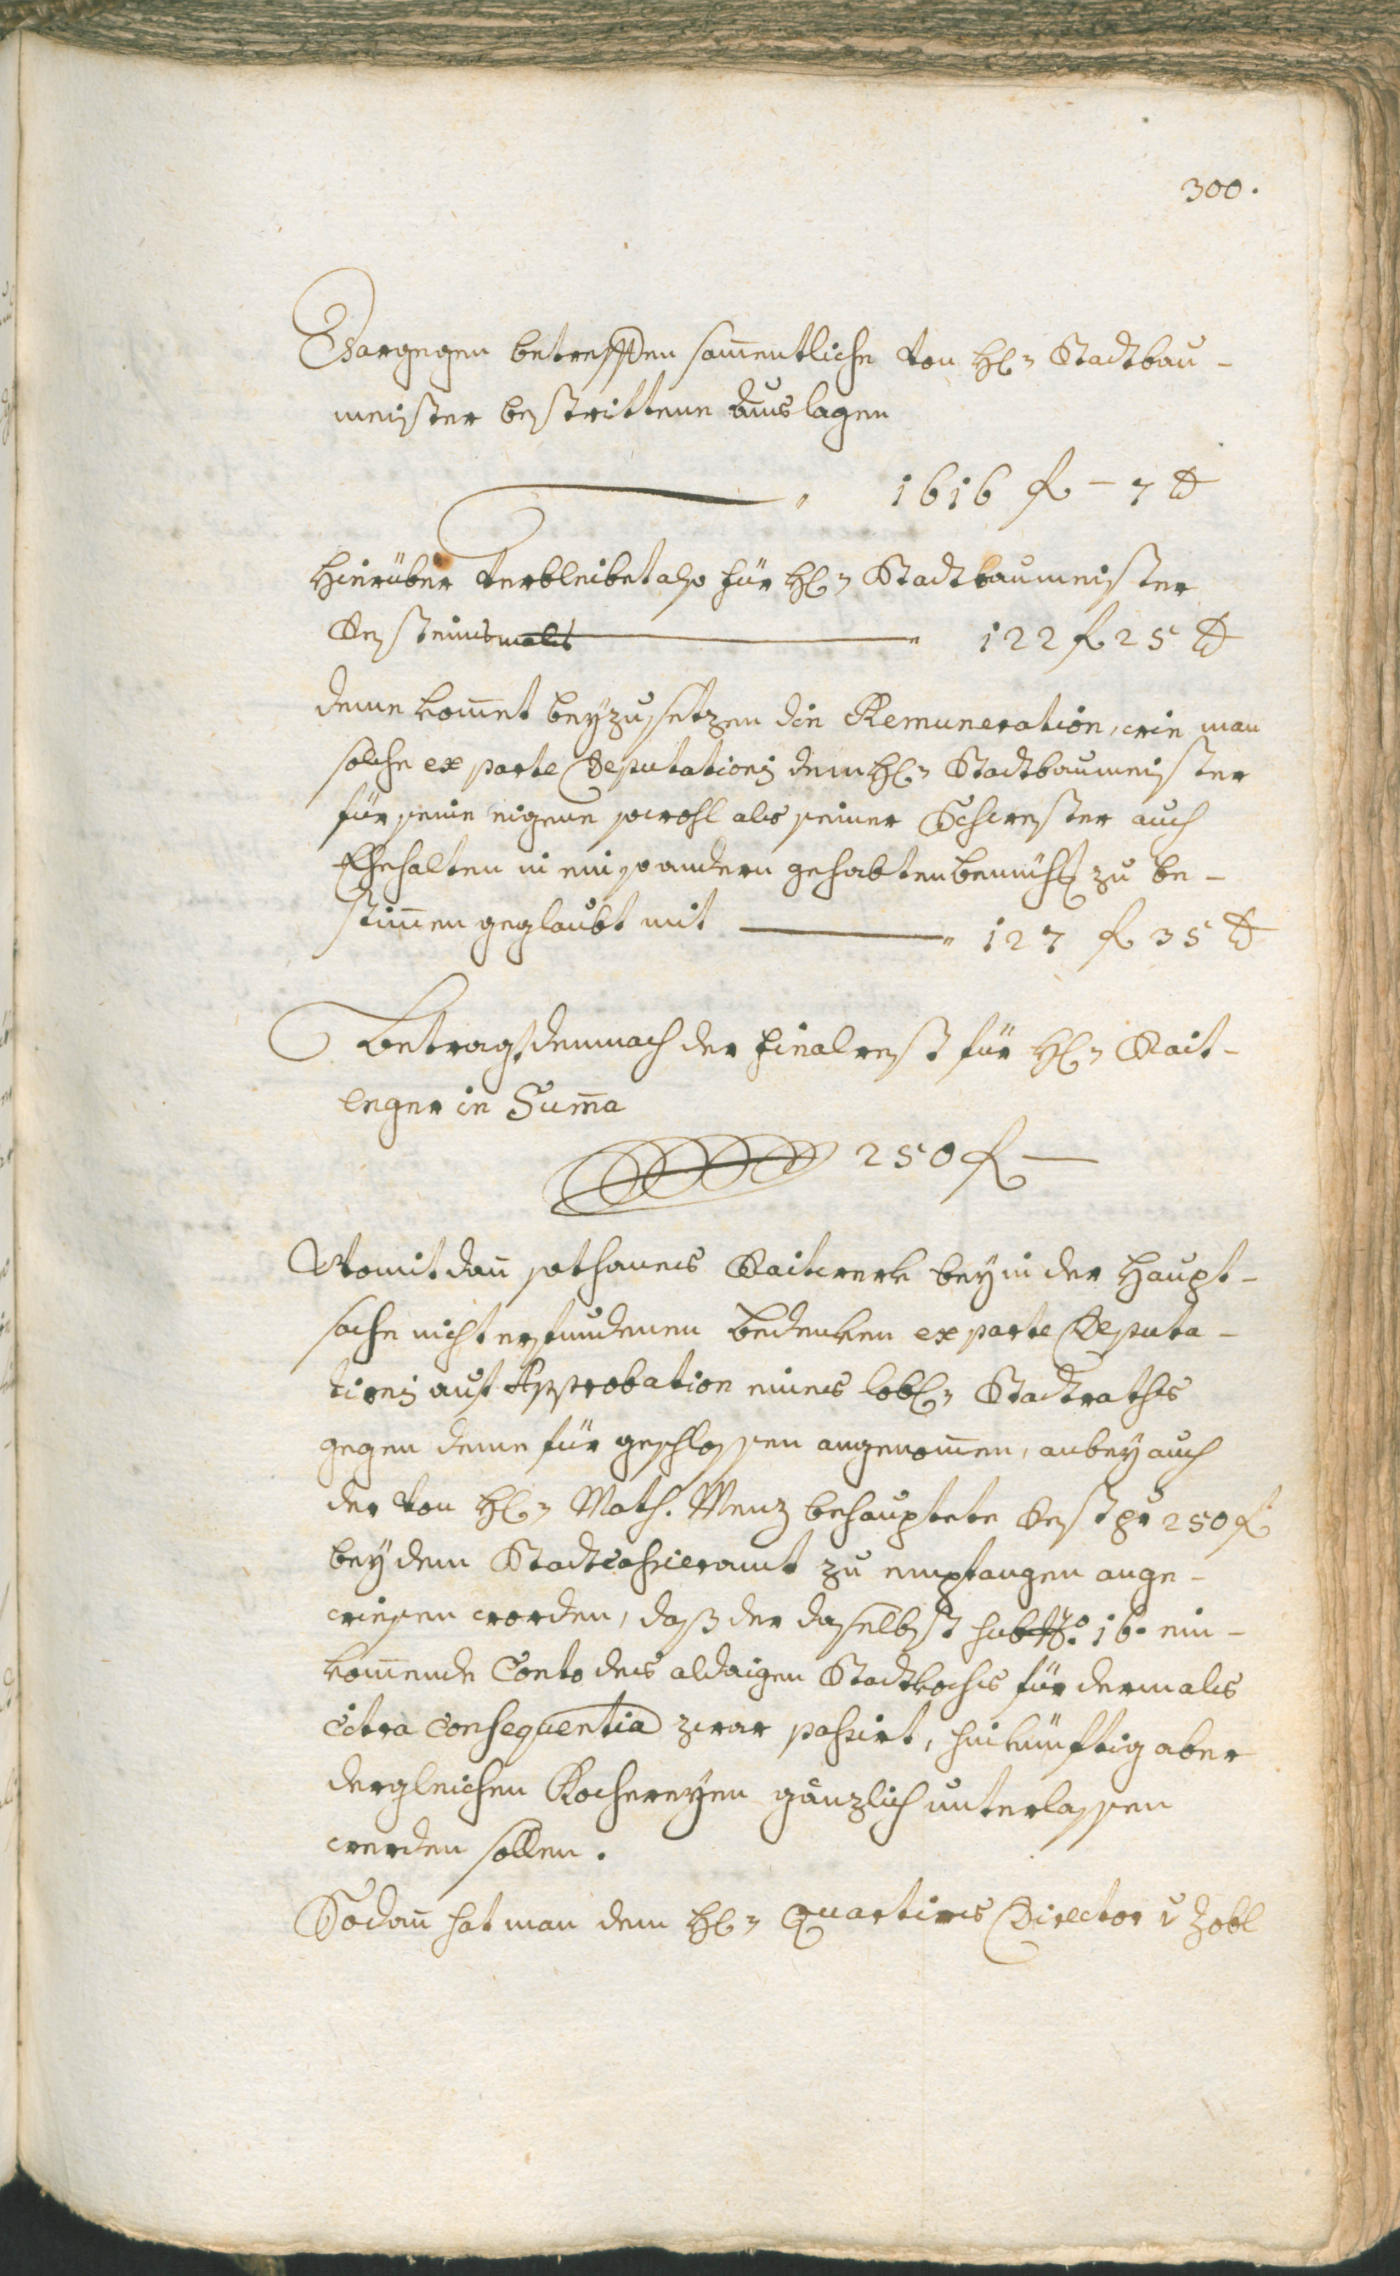 300.
Dargegen betreffen sam̅entliche von H: Stadtbau-
meister bestrittene Auslagen
1616 f - 7 x
Hierüber verbleibet also für H: Stadtbaumeister
Resteins 122 f 25 x
deme kom̅et beyzusetzen die Remuneration, wie man
solche ex parte Deputationis dem H: Stadtbaumeister
für seine eigene sowohl als seiner Schwester auch
Ehehalten in ein so andern gehabten bemüh zu be-
stim̅en geglaubt mit 127 f 35 x
Betragt demnach der Finalrest für H: Rait-
leger in Sum̅a
250 f
Womit dan̅ sothanes Raitwerk bey in der Haupt-
sache nicht erfundenen Bedenken ex parte Deputa-
tionis auf Approbation eines lobl: Stadtraths
gegen deme für geschlossen angenom̅en, anbey auch
der von H: Math. Menz behauptete Rest pr 250 f
bey dem Stadtcassieramt zu empfangen ange-
wiesen worden, daß der daselbst sub No. 16. ein-
kom̅ende Conto des aldaigen Stadtkochs für dermals
citra consequentia zwar passirt, hinkünftig aber
dergleichen Kochereyen gänzlich unterlassen
werden sollen.
Sodan̅ hat man dem H: Quartiers Director v Zobl